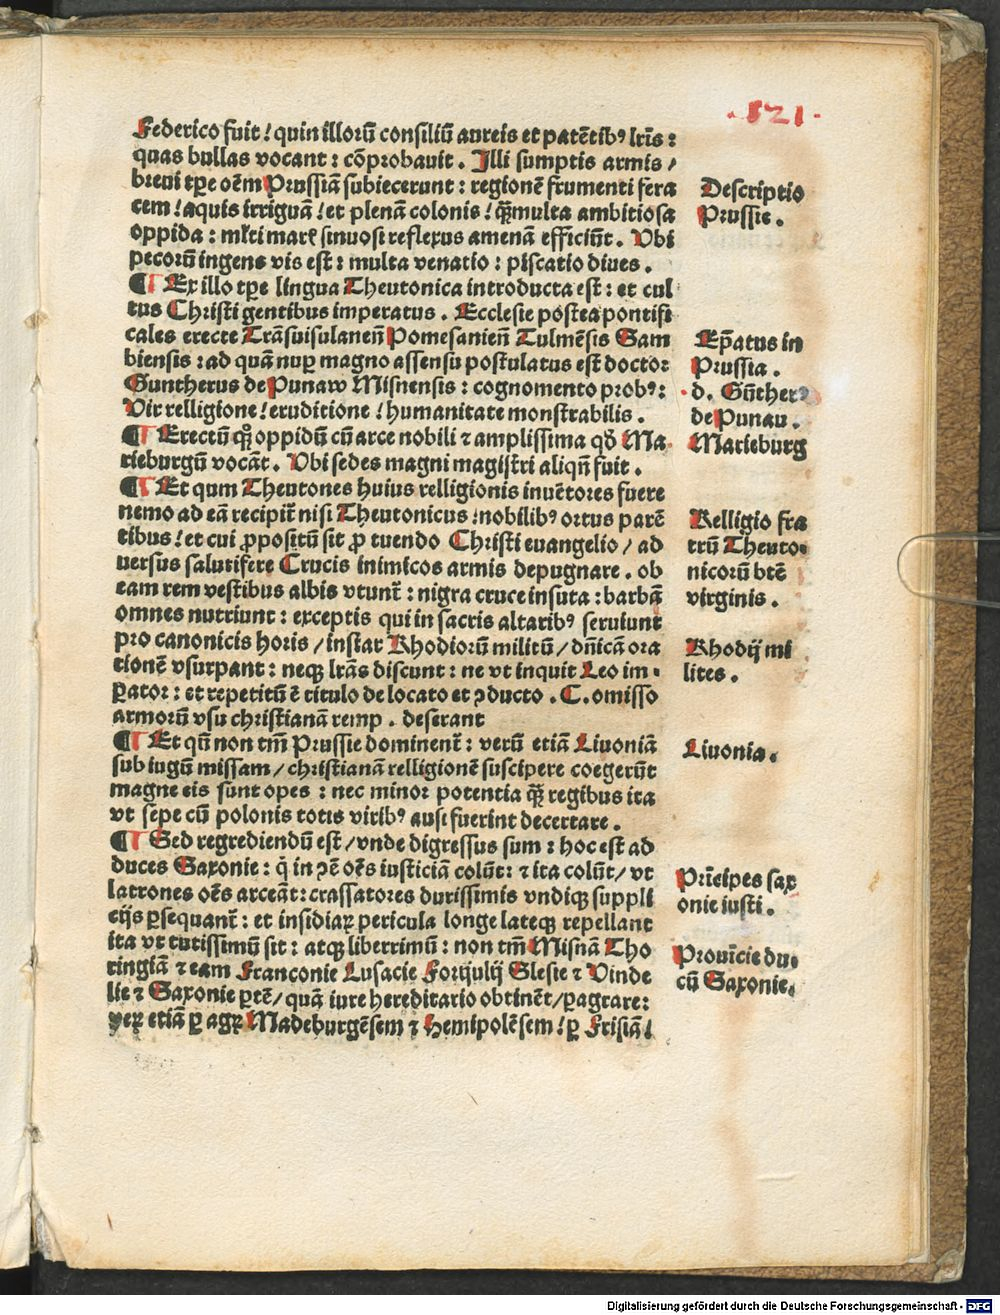 ·521·
Federico fuit! quin illorū consiliū aureis et patētibꝰ lr̄is:
quas bullas vocant: cōprobauit. Illi sumptis armis /
breui tꝑe oēm Prussiā subiecerunt: regionē frumenti fera
cem! aquis irriguā! et plenā colonis! qꝫ multa ambitiosa
oppida: ml̄ti marꝭ sinuosi reflexus amenā efficiūt. Vbi
pecorū ingens vis est: multa venatio: piscatio diues.
¶ Ex illo tꝑe lingua Theutonica introducta est: et cul
tus Christi gentibus imperatus. Ecclesie postea pontifi
cales erecte Trāsuisulaneñ Pomesanieñ Tulmēsis Sam
biensis: ad quā nuꝑ magno assensu postulatus est doctor
Guntherus de Punaw Misnensis: cognomento probꝰ:
Vir relligione! eruditione! humanitate monstrabilis.
¶ Erectū qꝫ oppidū cū arce nobili ⁊ amplissima qđ Ma-
rieburgū vocāt. Vbi sedes magni magistri aliqñ fuit.
¶ Et qum Theutones huius relligionis inuētores fuere
nemo ad eā recipit̄ nisi Theutonicus: nobilibꝰ ortus parē
tibus! et cui ꝓpositū sit ꝓ tuendo Christi euangelio / ad
uersus salutifere Crucis inimicos armis depugnare. ob
eam rem vestibus albis vtunt̄: nigra cruce insuta: barbā
omnes nutriunt: exceptis qui in sacris altaribꝰ seruiunt
pro canonicis horis / instar Rhodiorū militū / dn̄icā ora
tionē vsurpant: neqꝫ lr̄as discunt: ne vt inquit Leo im-
ꝑator: et repetitū ē titulo de locato et ꝯducto. C. omisso
armorū vsu christianā remp. deserant
¶ Et qn̄ non tm̄ Prussie dominent̄: verū etiā Liuoniā
sub iugū missam / christianā relligionē suscipere coegerūt
magne eis sunt opes: nec minor potentia qꝫ regibus ita
vt sepe cū polonis totis viribꝰ ausi fuerint decertare.
¶ Sed regrediendū est / vnde digressus sum: hoc est ad
duces Saxonie: q̇ in ꝯē oēs iusticiā colūt: ⁊ ita colūt / vt
latrones oēs arceāt: crassatores durissimis vndiqꝫ suppli
cijs ꝑsequant̄: et insidiaꝝ pericula longe lateqꝫ repellant
ita vt tutissimū sit: atqꝫ liberrimū: non tm̄ Misnā Tho
ringiā ⁊ eam Franconie Lusacie Forijulij Slesie ⁊ Vinde
lie ⁊ Saxonie ꝑtē / quā iure hereditario obtinēt / ꝑagrare:
veꝝ etiā ꝑ agꝝ Madeburgēsem ⁊ Hemipolēsem! ꝑ Frisiā!
Descriptio
Prussie.
Ep̄atus in
Prussia.
·d. Gūtherꝰ
de Punau.
Marieburg
Relligio fra
trū Theuto-
nicorū btē
virginis.
Rhodij mi
lites.
Liuonia.
Prīcipes sax
onie iusti.
Prouīcie du-
cū Saxonie.
Digitalisierung gefördert durch die Deutsche Forschungsgemeinschaft - DFG